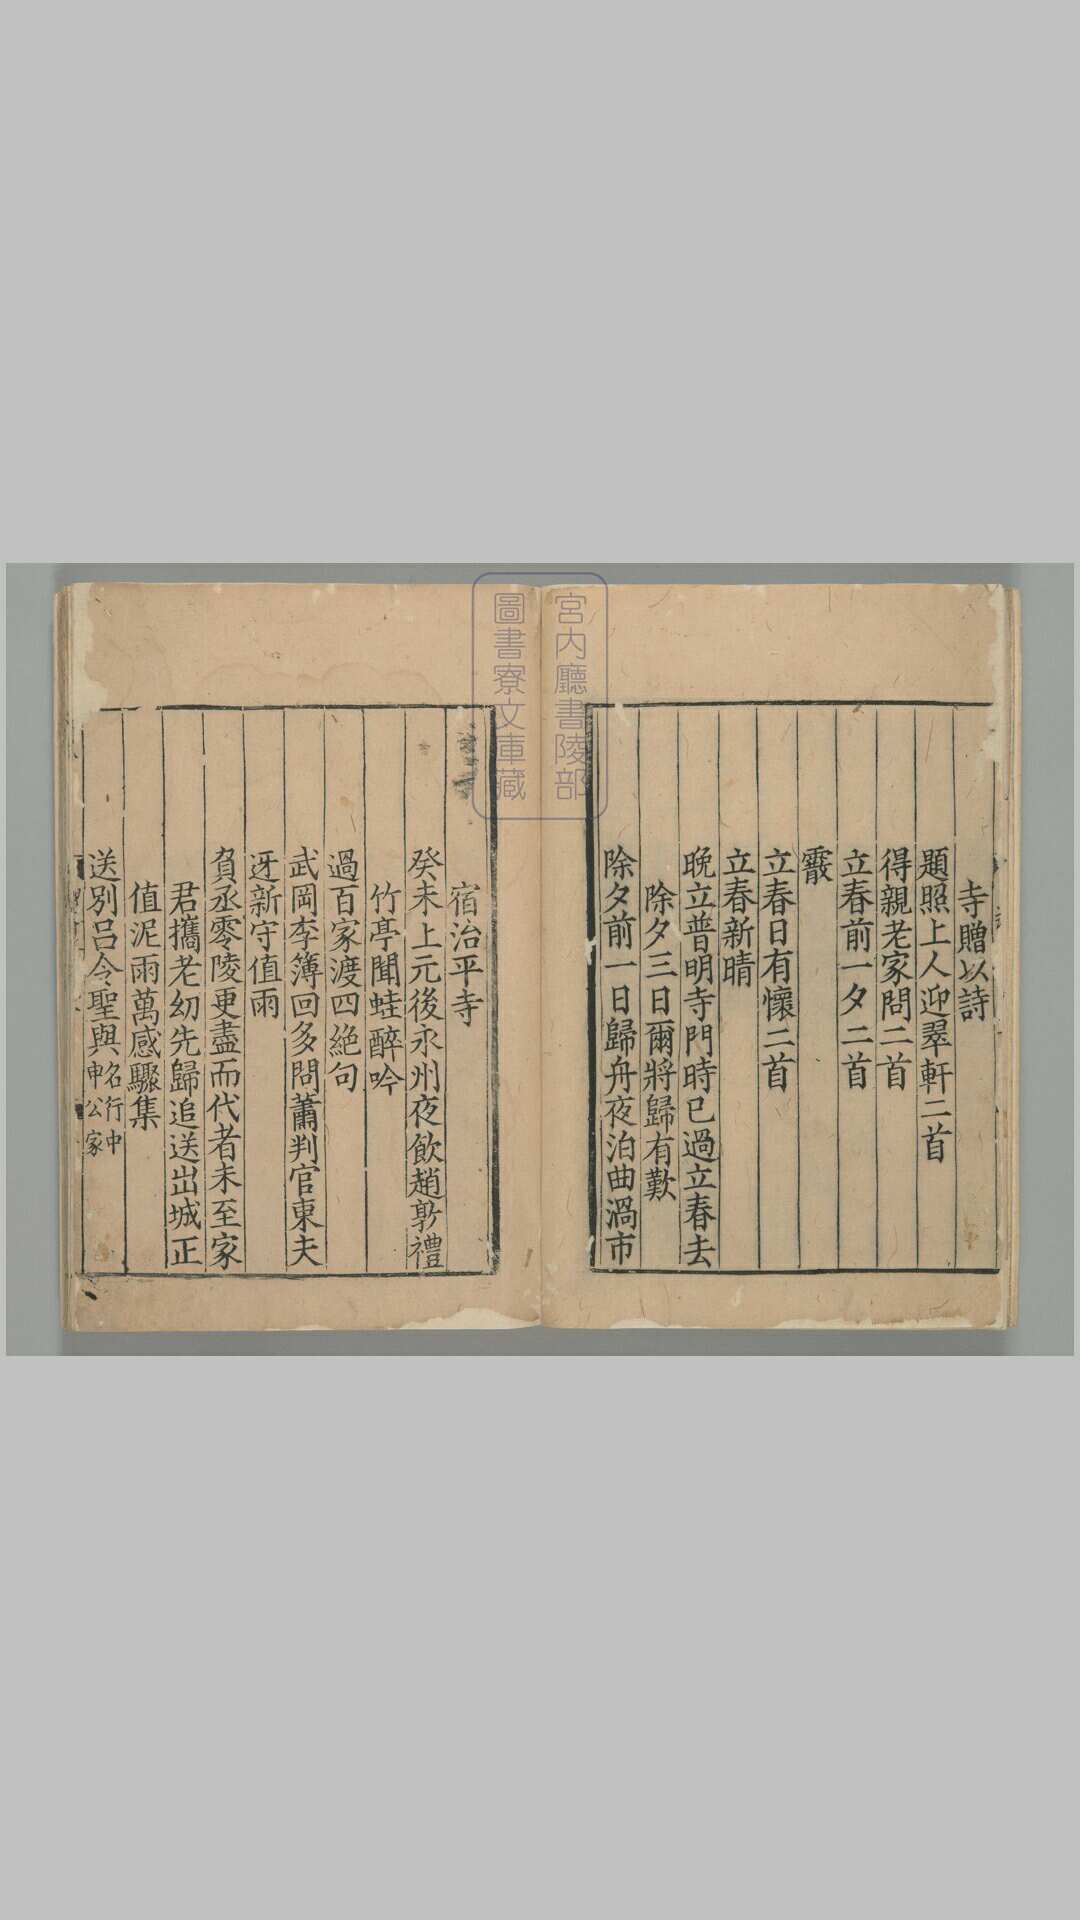 寺贈以詩
題照上人迎翠軒二首
得親老家問二首
立春前一夕二首
霰
立春日有懷二首
立春新晴
晚立普明寺門時已過立春去
除夕三日爾將歸有歎
除夕前一日歸舟夜泊曲渦市
宿治平寺
癸未上元後永州夜飲趙敦禮
竹亭聞蛙醉吟
過百家渡四絕句
武岡李簿回多問蕭判官東夫
迓新守值雨
負丞零陵更盡而代者未至家
君攜老幼先歸追送出城正
值泥雨萬感驟集
送別呂令聖與名行中申公家
宮內廳書陵部
圖書寮文庫藏